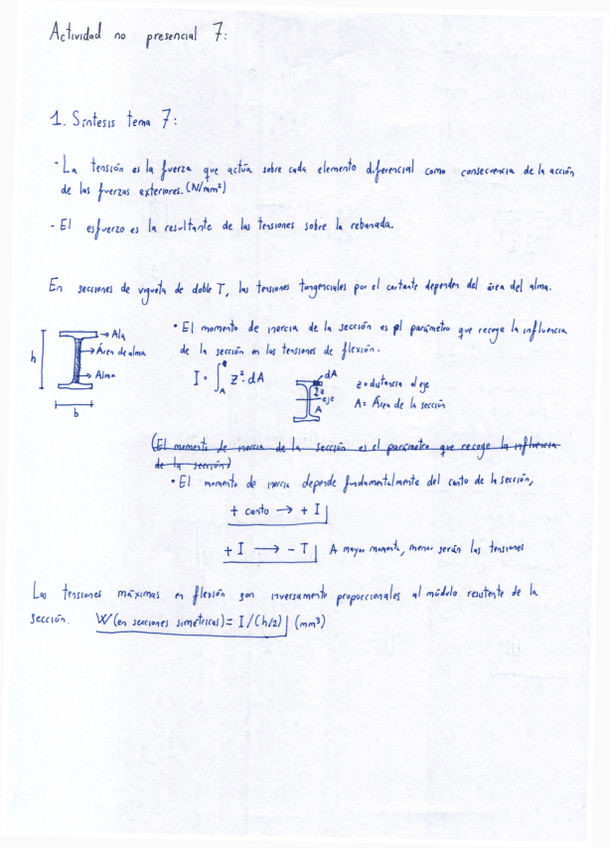 Actividad no presencial 7:
1. Síntesis tema 7:
- La tensión es la fuerza que actúa sobre cada elemento diferencial como consecuencia de la acción
de las fuerzas exteriores. (N/mm²)
- El esfuerzo es la resultante de las tensiones sobre la rebanada.
En secciones de vigueta de doble T, las tensiones tangenciales por el cortante dependen del área del alma.
h
b
→ Ala
→ Área de alma
→ Alma
• El momento de inercia de la sección es el parámetro que recoge la influencia
de la sección en las tensiones de flexión.
I = ∫_A z² · dA
dA
z
eje
A
z = distancia al eje
A = Área de la sección
(El momento de inercia de la sección es el parámetro que recoge la influencia
de la sección)
• El momento de inercia depende fundamentalmente del canto de la sección,
+ canto → + I
+ I → - T A mayor momento, menor serán las tensiones
Las tensiones máximas en flexión son inversamente proporcionales al módulo resistente de la
sección. W (en secciones simétricas) = I/(h/2) (mm³)